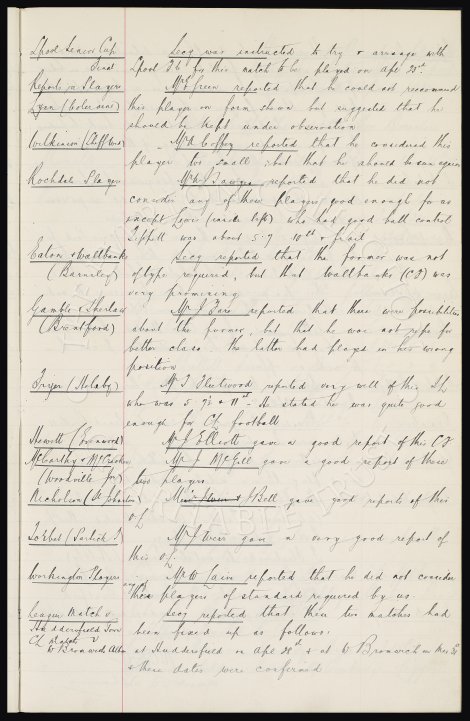 Lpool Senior Cup Secy was instructed to try & arrange with
Final Lpool F.C. for this match to be played on Apl 23rd.
Reports in Players Mr Green reported that he could not recommend
Lyon (Wolves) this player on form shown but suggested that he
should be kept under observation
Wilkinson (Sheff Wed) Mr A Coffey reported that he considered this
player too small but that he should be seen again
Rochdale Players Mr H Sawyer reported that he did not
consider any of these players good enough for us
except Lowe (inside left) who had good ball control
Tippett was about 5.7 10st & frail
Eaton & Wallbanks Secy reported that the former was not
(Barnsley) of type required, but that Wallbanks (C F) was
very promising
Gamble & Sherlaw Mr J Fare reported that there were possibilities
(Brentford) about the former, but that he was not ripe for
better class. The latter had played in his wrong
position
Fryer (Nelaby) Mr T Fleetwood reported very well of this I.L.
who was 5.7½ & 11st - He stated he was quite good
enough for C.L. football
Hewitt (Evenwood) Mr J Elliott gave a good report of this C F
McCarthy & McCracken Mr J McGill gave a good report of these
(Woodville Jr) two players
Nicholson (St Johnston) Mr J Bell gave good reports of this
O.L.
Torbet (Partick T) Mr J Weir gave a very good report of
this O.L.
Workington Players Mr W Cain reported that he did not consider
any of these players of standard required by us
League Match v Secy reported that these two matches had
Huddersfield Town been fixed up as follows:
CL Match v
W Bromwich Albn at Huddersfield on Apl 28th & at W Bromwich on May 3rd
& these dates were confirmed